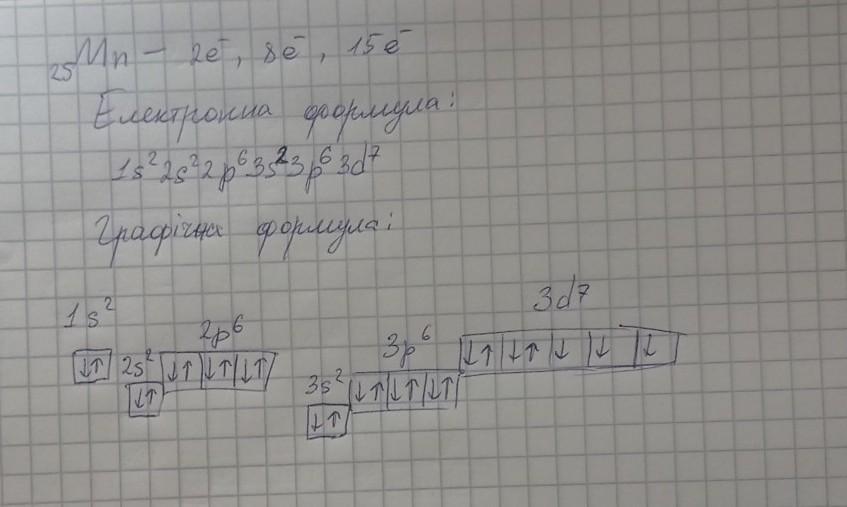 ₂₅Mn — 2e⁻, 8e⁻, 15e⁻
Електронна формула:
1s²2s²2p⁶3s²3p⁶3d⁷
Графічна формула:
3d⁷
1s² 2p⁶ 3p⁶ ↓↑ ↓↑ ↓ ↓ ↓
↓↑ 2s² ↓↑ ↓↑ ↓↑ 3s² ↓↑ ↓↑ ↓↑
↓↑ ↓↑